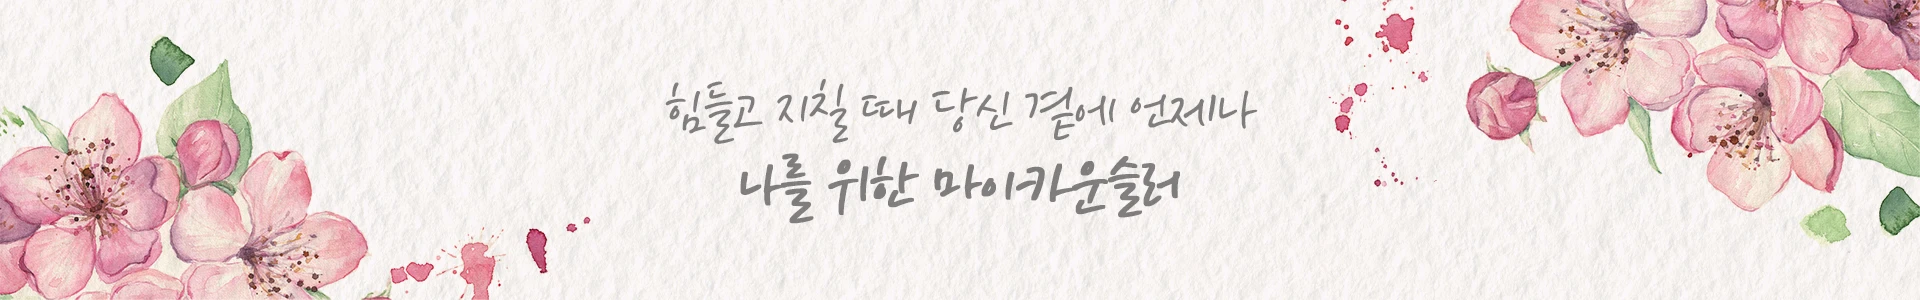 힘들고 지칠 때 당신 곁에 언제나
나를 위한 마이카운슬러